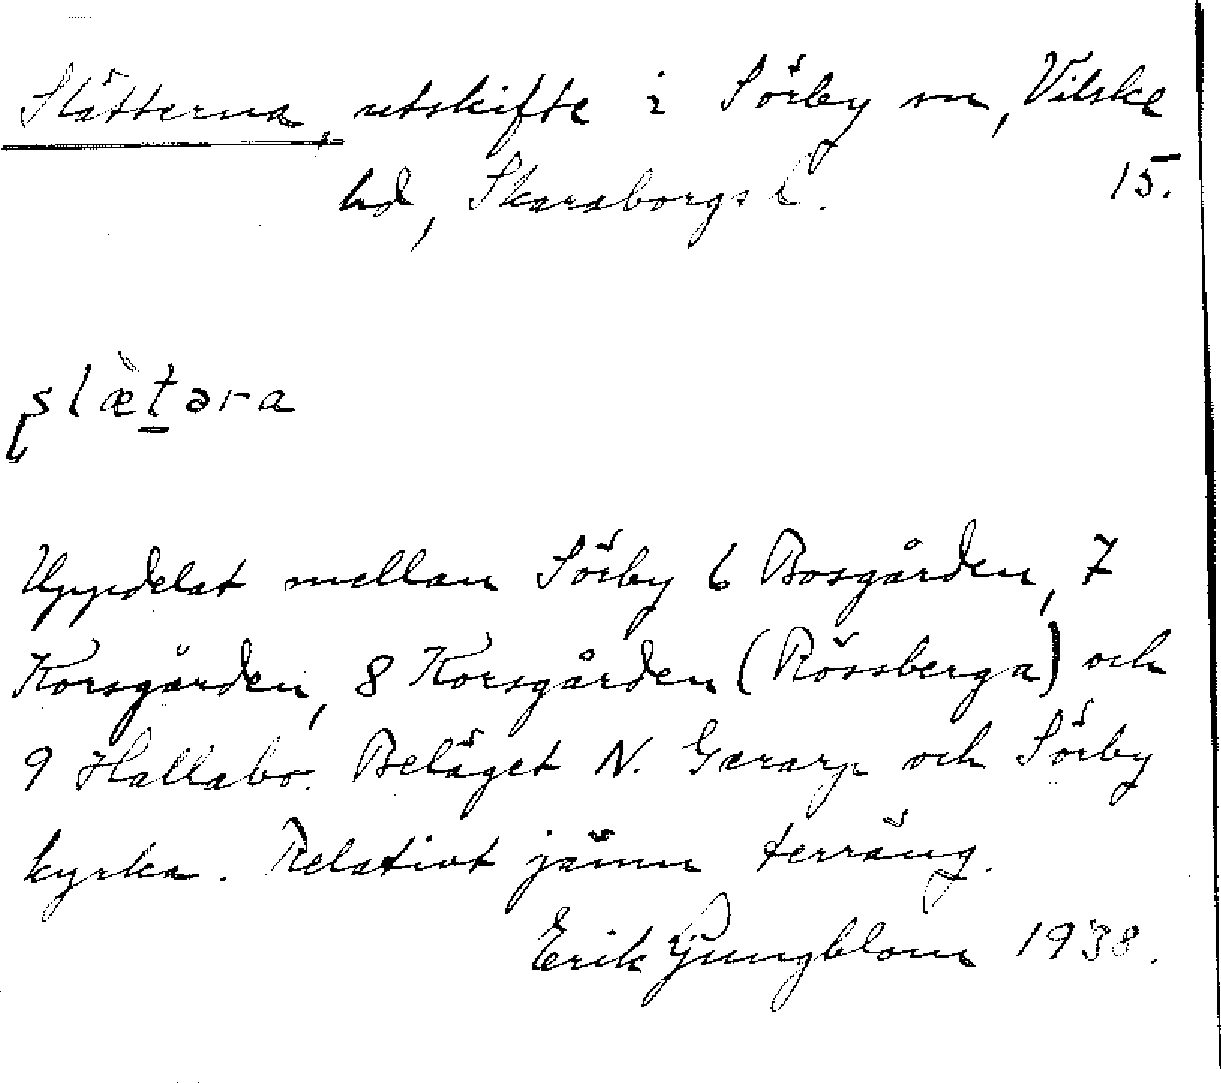 Slätterna, utskifte i Sörby sn, Vilske
hd, Skaraborgs l. 15.
slæ̀təra
Uppdelat mellan Sörby 6 Bosgården, 7
Korsgården, 8 Korsgården (Rössberga) och
9 Hallabo. Beläget N. Gararp och Sörby
kyrka. Relativt jämn terräng.
Erik Ljungblom 1938.